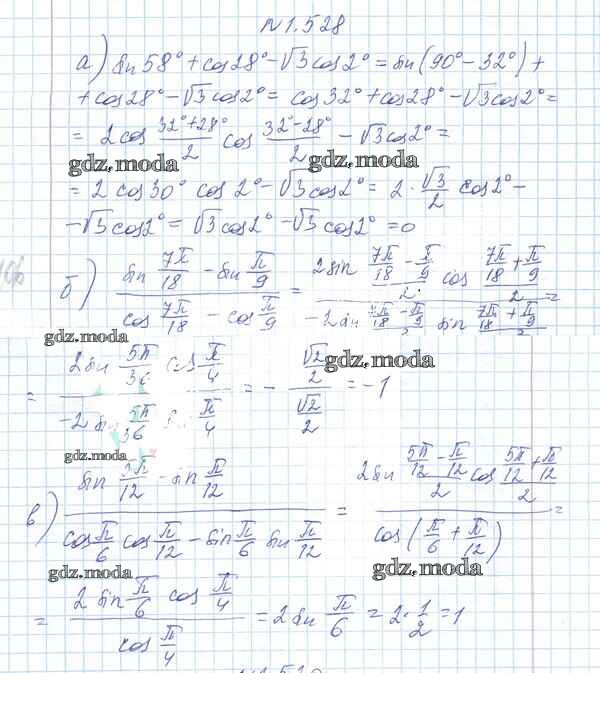 N 1.528
а) sin 58° + cos 28° - √3 cos 2° = sin (90° - 32°) +
+ cos 28° - √3 cos 2° = cos 32° + cos 28° - √3 cos 2° =
= 2 cos (32° + 28°)/2 cos (32° - 28°)/2 - √3 cos 2° =
gdz.moda gdz.moda
= 2 cos 30° cos 2° - √3 cos 2° = 2 · √3/2 cos 2° -
- √3 cos 2° = √3 cos 2° - √3 cos 2° = 0
б) (sin 7π/18 - sin π/9)/(cos 7π/18 - cos π/9) = (2 sin (7π/18 - π/9)/2 cos (7π/18 + π/9)/2)/(-2 sin (7π/18 - π/9)/2 sin (7π/18 + π/9)/2) =
gdz.moda
= (2 sin 5π/36 cos π/4)/(-2 sin 5π/36 sin π/4) = - (√2/2)/(√2/2) = -1
gdz.moda
gdz.moda
в) (sin 5π/12 - sin π/12)/(cos π/6 cos π/12 - sin π/6 sin π/12) = (2 sin (5π/12 - π/12)/2 cos (5π/12 + π/12)/2)/(cos (π/6 + π/12)) =
gdz.moda gdz.moda
= (2 sin π/6 cos π/4)/(cos π/4) = 2 sin π/6 = 2 · 1/2 = 1